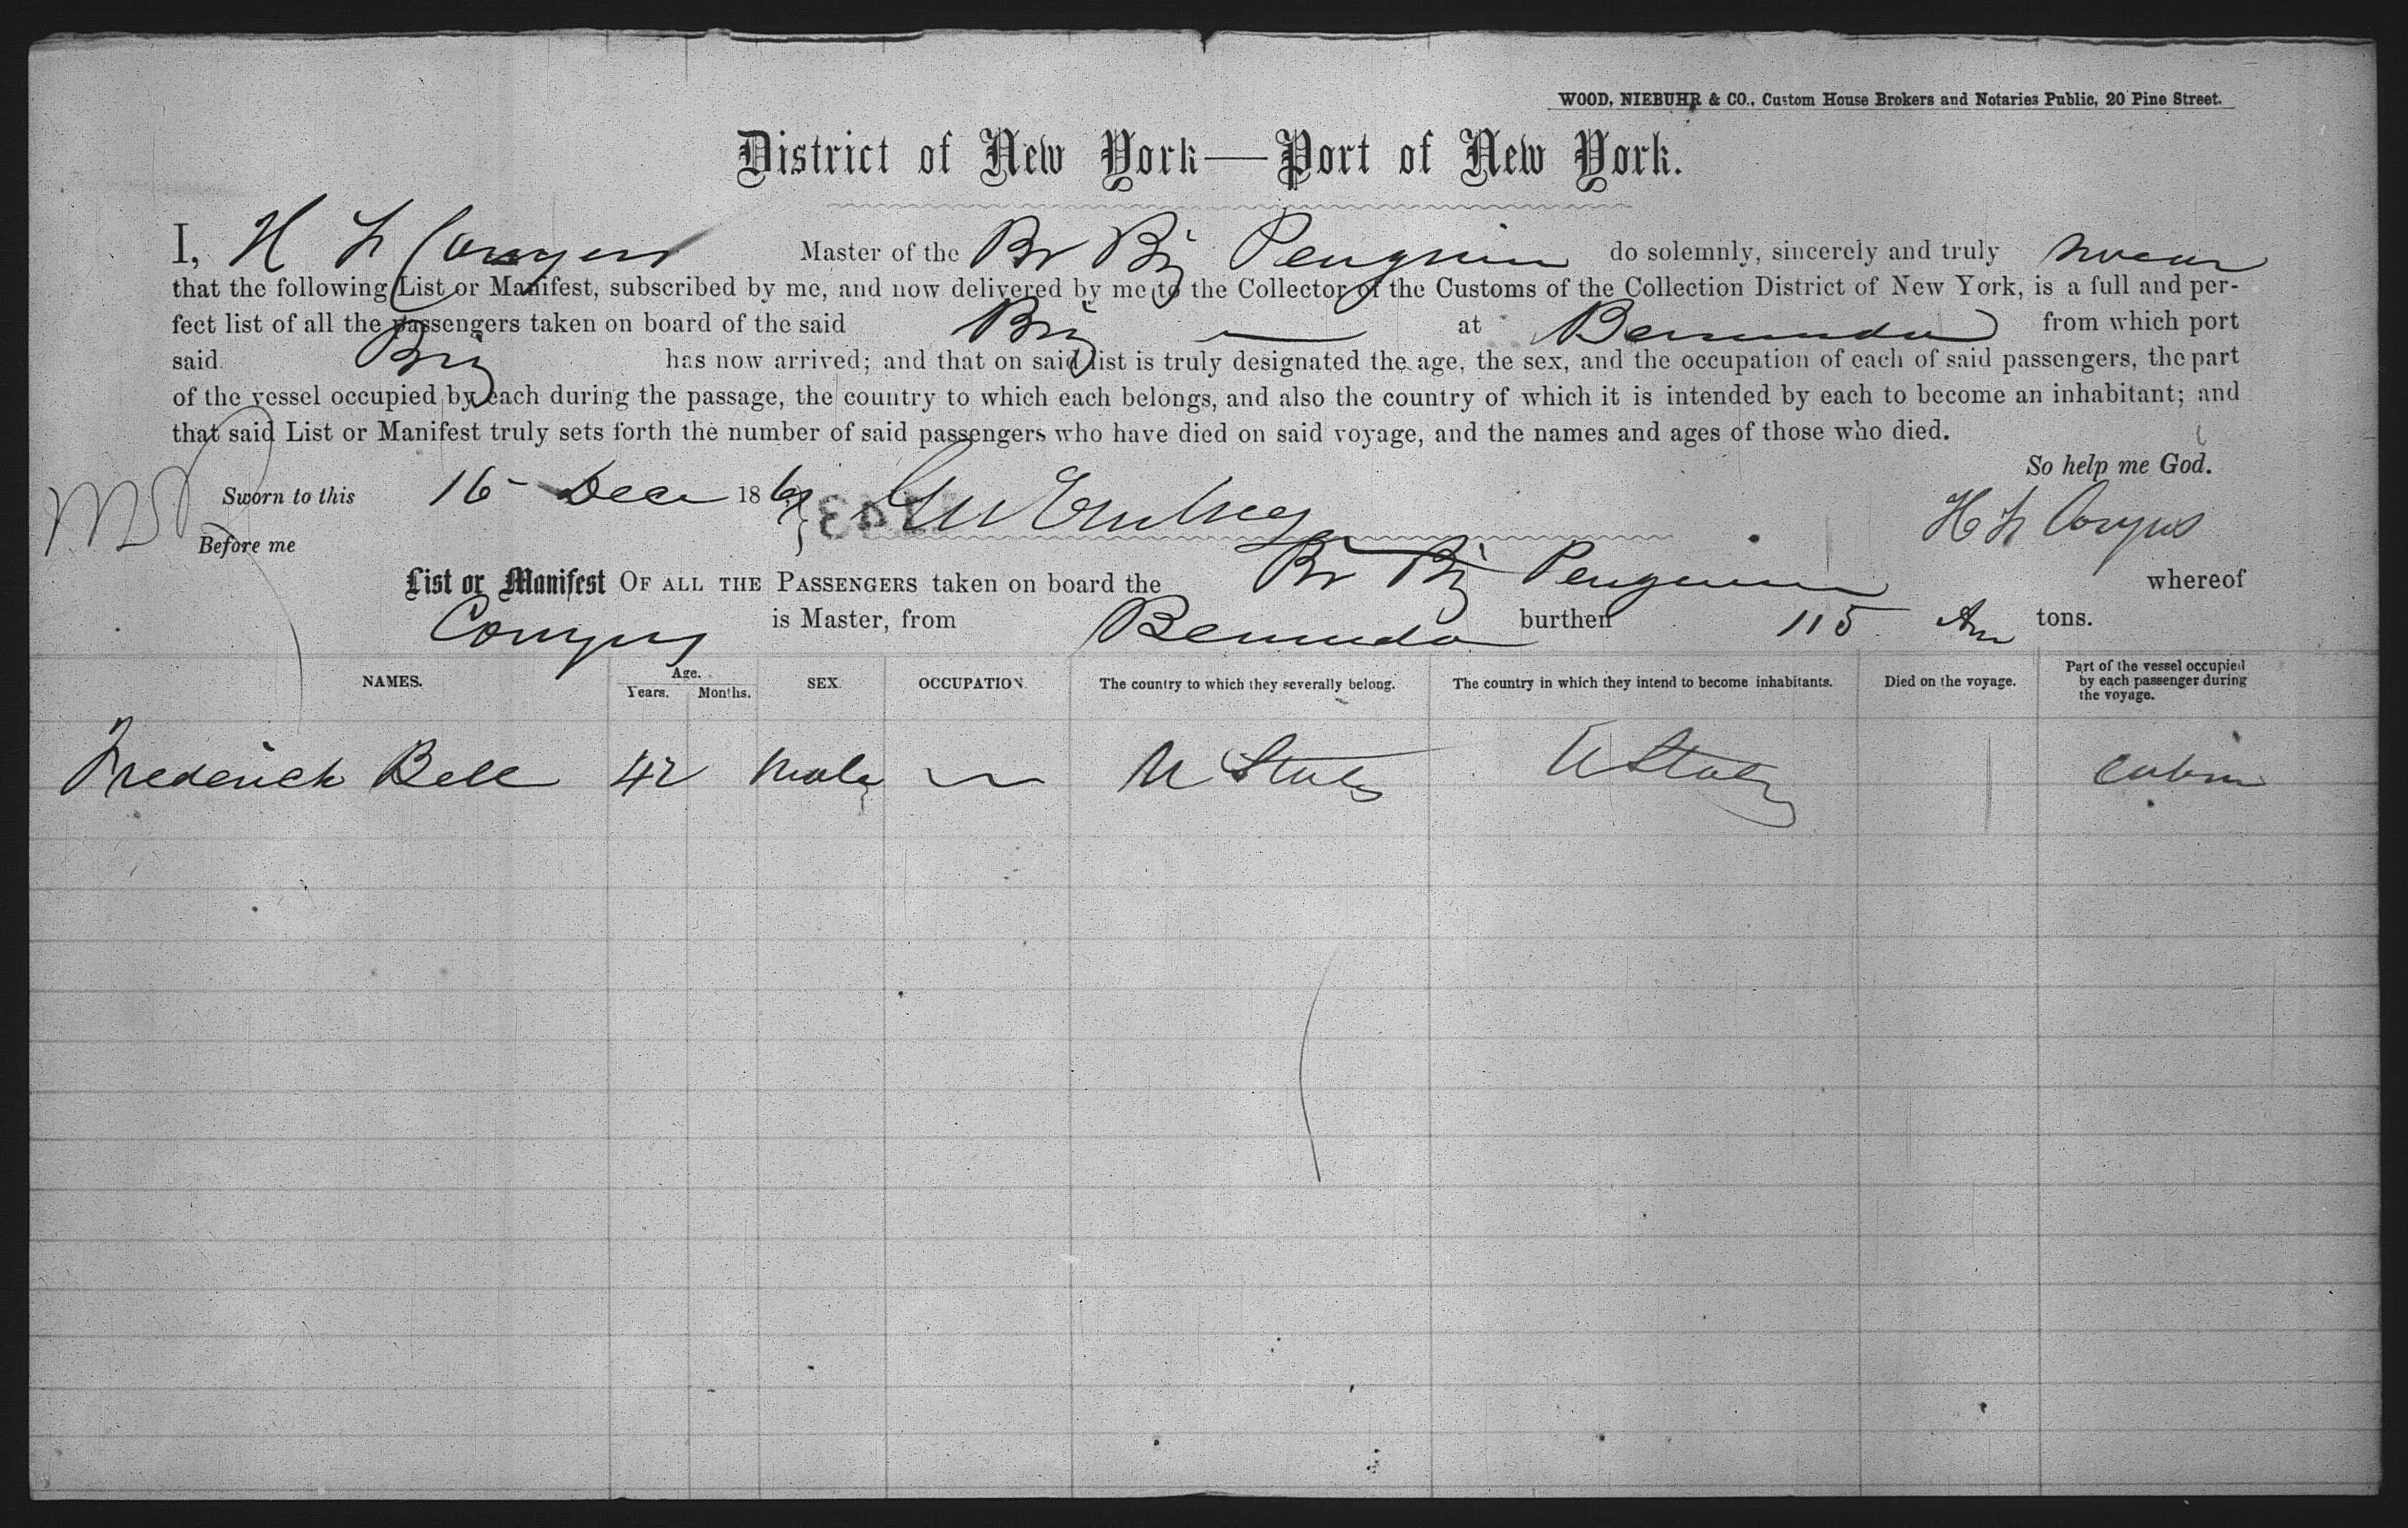 WOOD, NIEBUHR & CO., Custom House Brokers and Notaries Public, 20 Pine Street.
District of New York—Port of New York.
I, H L Conyers Master of the Br Brig Penguin do solemnly, sincerely and truly swear
that the following List or Manifest, subscribed by me, and now delivered by me to the Collector of the Customs of the Collection District of New York, is a full and per-
fect list of all the passengers taken on board of the said Brig at Bermuda from which port
said Brig has now arrived; and that on said list is truly designated the age, the sex, and the occupation of each of said passengers, the part
of the vessel occupied by each during the passage, the country to which each belongs, and also the country of which it is intended by each to become an inhabitant; and
that said List or Manifest truly sets forth the number of said passengers who have died on said voyage, and the names and ages of those who died.
So help me God.
Sworn to this 16 Dec 186
H L Conyers
Before me
List or Manifest OF ALL THE PASSENGERS taken on board the Br Brig Penguin whereof
Conyers is Master, from Bermuda burthen 115 tons.
NAMES. Age. Years. Months. SEX. OCCUPATION. The country to which they severally belong. The country in which they intend to become inhabitants. Died on the voyage. Part of the vessel occupied by each passenger during the voyage.
Frederick Bell 42 Male U States U States cabin